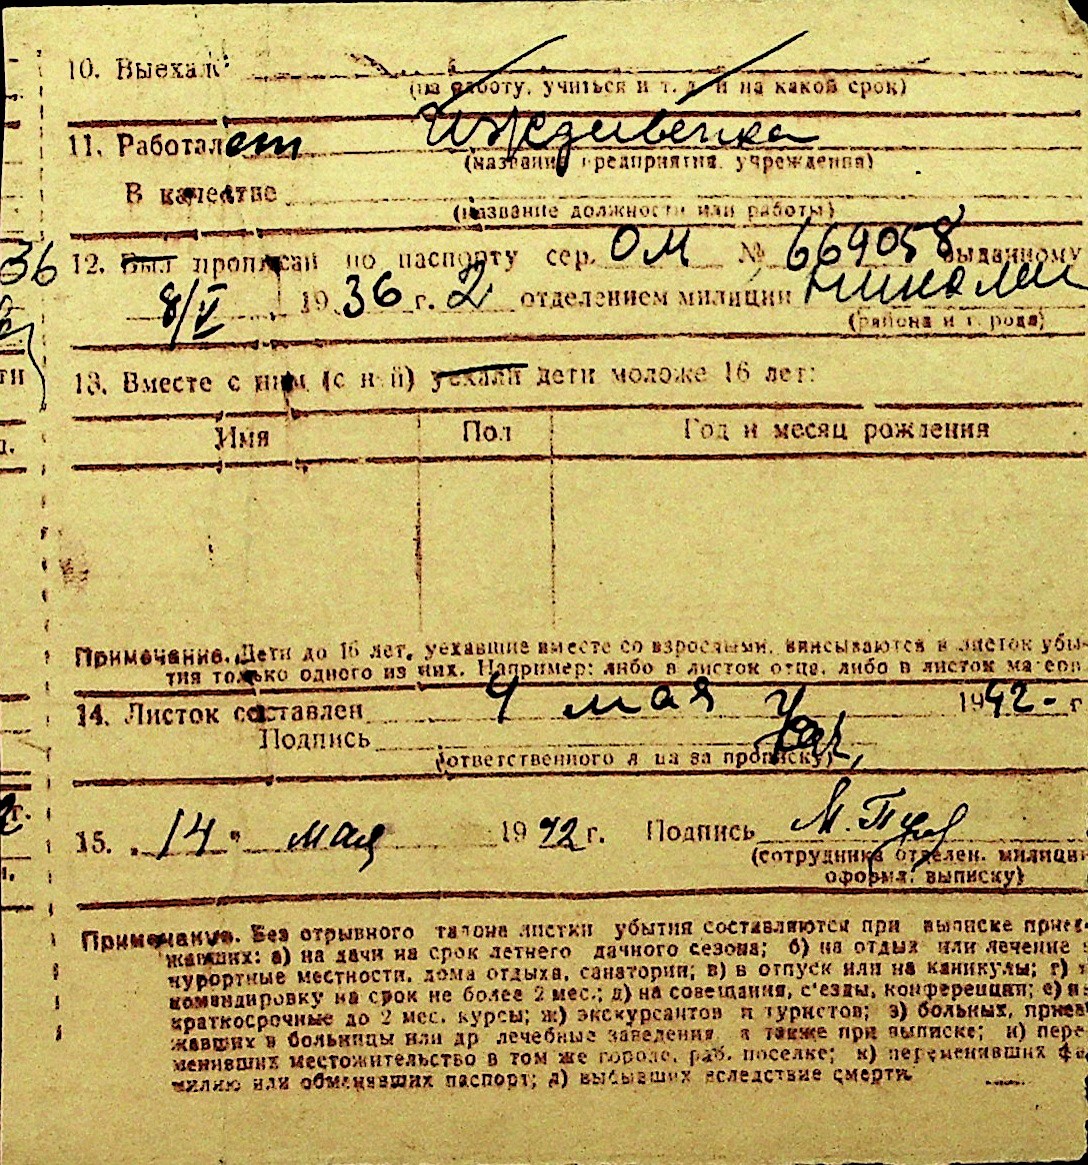 10. Выехал
(на работу, учиться и т. д. и на какой срок)
11. Работает Иждивенка
(название предприятия, учреждения)
В качестве
(название должности или работы)
36 12. Был прописан по паспорту сер. ОМ № 669058 выданному
8/V 1936 г. 2 отделением милиции
(района и города)
13. Вместе с ним (с ней) уехали дети моложе 16 лет:
Имя Пол Год и месяц рождения
Примечание. Дети до 16 лет, уехавшие вместе со взрослыми, вписываются в листок убы-
тия только одного из них. Например: либо в листок отца, либо в листок матери.
14. Листок составлен 4 мая 1942 - г
Подпись
(ответственного лица за прописку)
15. „14" мая 1942 г. Подпись
(сотрудника отделен. милиции
оформл. выписку)
Примечание. Без отрывного талона листки убытия составляются при выписке приез-
жавших: а) на дачи на срок летнего дачного сезона; б) на отдых или лечение
курортные местности, дома отдыха, санатории; в) в отпуск или на каникулы; г)
командировку на срок не более 2 мес.; д) на совещания, с'езды, конференции; е) н
краткосрочные до 2 мес. курсы; ж) экскурсантов и туристов; з) больных, приез
жавших в больницы или др лечебные заведения, а также при выписке; и) пере-
менивших местожительство в том же городе, раб. поселке; к) переменивших фа
милию или обменявших паспорт; л) выбывших вследствие смерти.